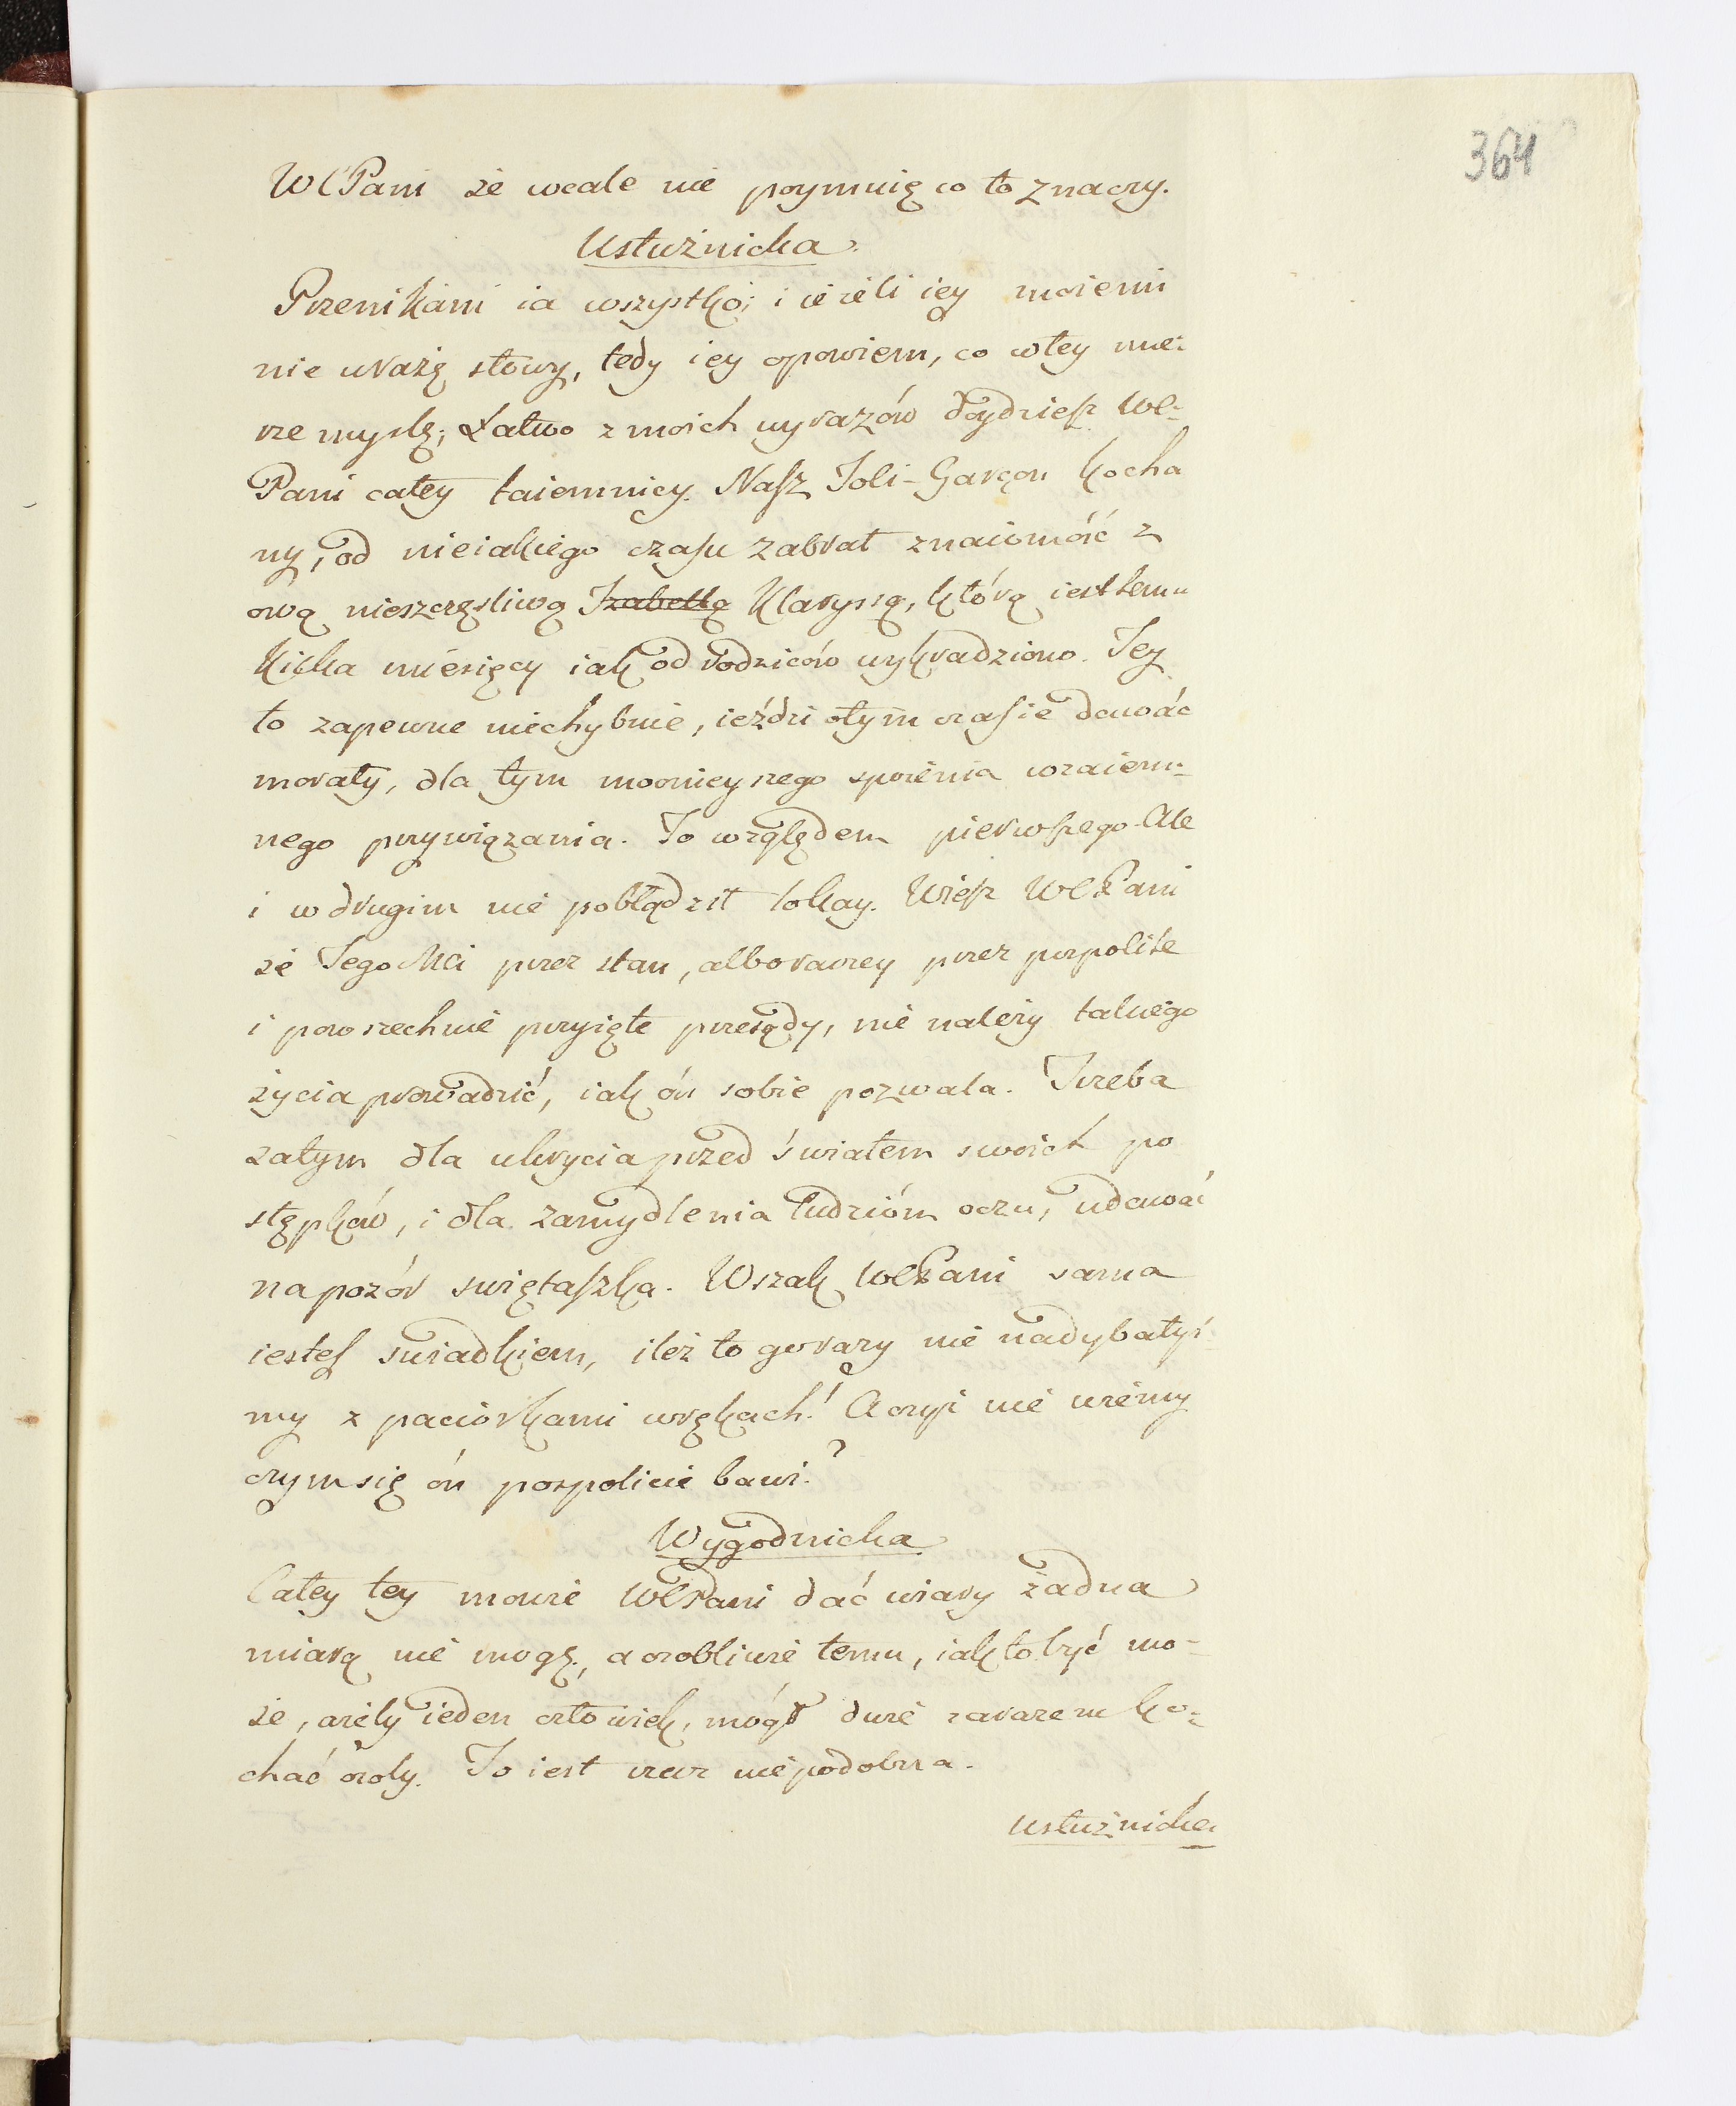 364
WCPani że wcale nie poymuię co to znaczy.
Usłużnicka.
Przenikam ia wszystko; i ieżeli iey moiemi
nie urażę słowy, tedy iey opowiem, co w tey mie-
rze myslę; Łatwo z moich wyrazów doydziesz WC-
Pani całey taiemnicy. Nasz Joli-Garçon kocha
ny, od nieiakiego czasu zabrał znaiomość z
ową nieszczęsliwą Izabellą Klaryssą, którą iest temu
kilka miesięcy iak od rodziców wykradziono. Jey
to zapewne niechybnie, ieździ o tym czasie dawać
morały, dla tym mocnieyszego spoienia wzaiem-
nego przywiązania. To względem pierwszego. Ale
i w drugim nie pobłądził lokay. Wiesz WCPani
że Jego Mci przez stan, albo raczey przez pospolite
i powszechnie przyięte przesądy, nie należy takiego
życia prowadzić, iak ón sobie pozwala. Trzeba
zatym dla ukrycia przed światem swoich po
stępków, i dla zamydlenia ludzióm oczu, udawać
na pozór swiętaszka. Wszak WCPani sama
iestes swiadkiem, ileż to go razy nie nadybałyś-
my z paciórkami w ręKach! A czyż nie wiemy
czym się ón pospolicie bawi?
Wygodnicka
Całey tey mowie WCPani dać wiary żadna
miarą nie mogę, a osobliwie temu, iak to być mo-
że, ażeby ieden człowiek, mógł dwie zarazem ko-
chać osoby. To iest rzecz niepodobna.
Usłużnicka